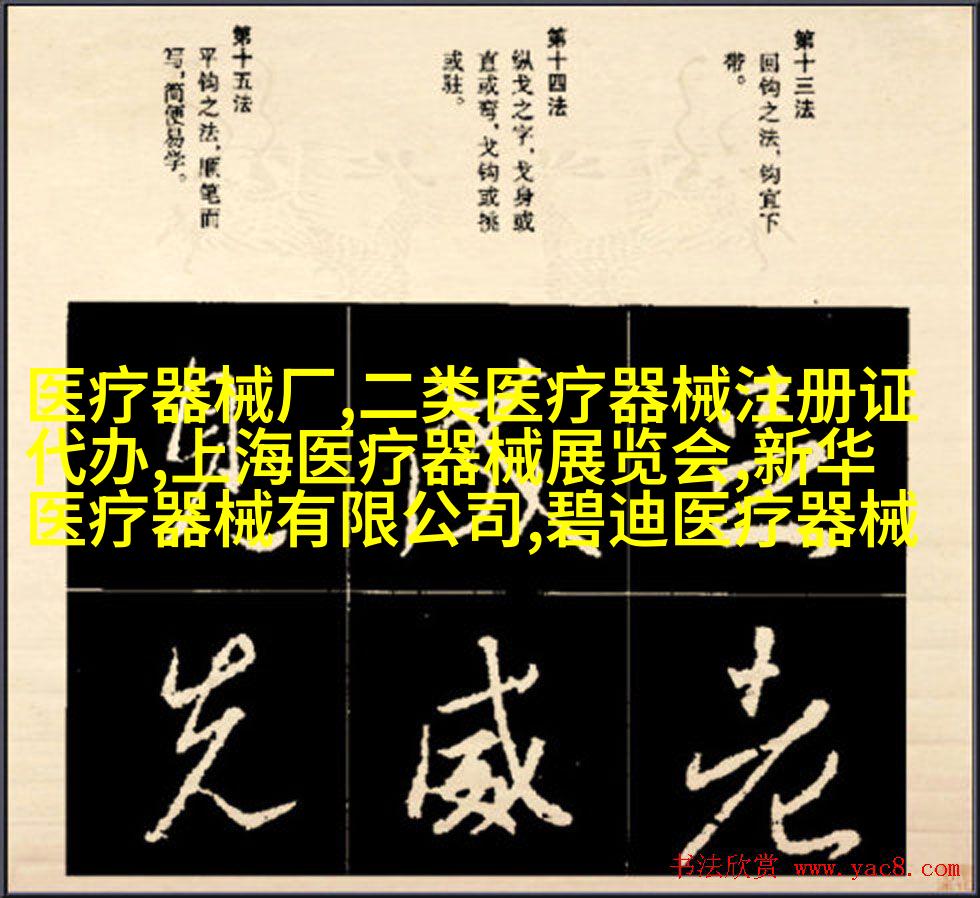 第十三法
回钩之法，钩宜下
带。
第十四法
纵戈之字，戈身或
直或弯，戈钩或挑
或驻。
第十五法
平钩之法，顺笔而
写，简便易学。
医疗器械厂,二类医疗器械注册证
代办,上海医疗器械展览会,新华
医疗器械有限公司,碧迪医疗器械
老
威
先
书法欣赏 www.yac8.com